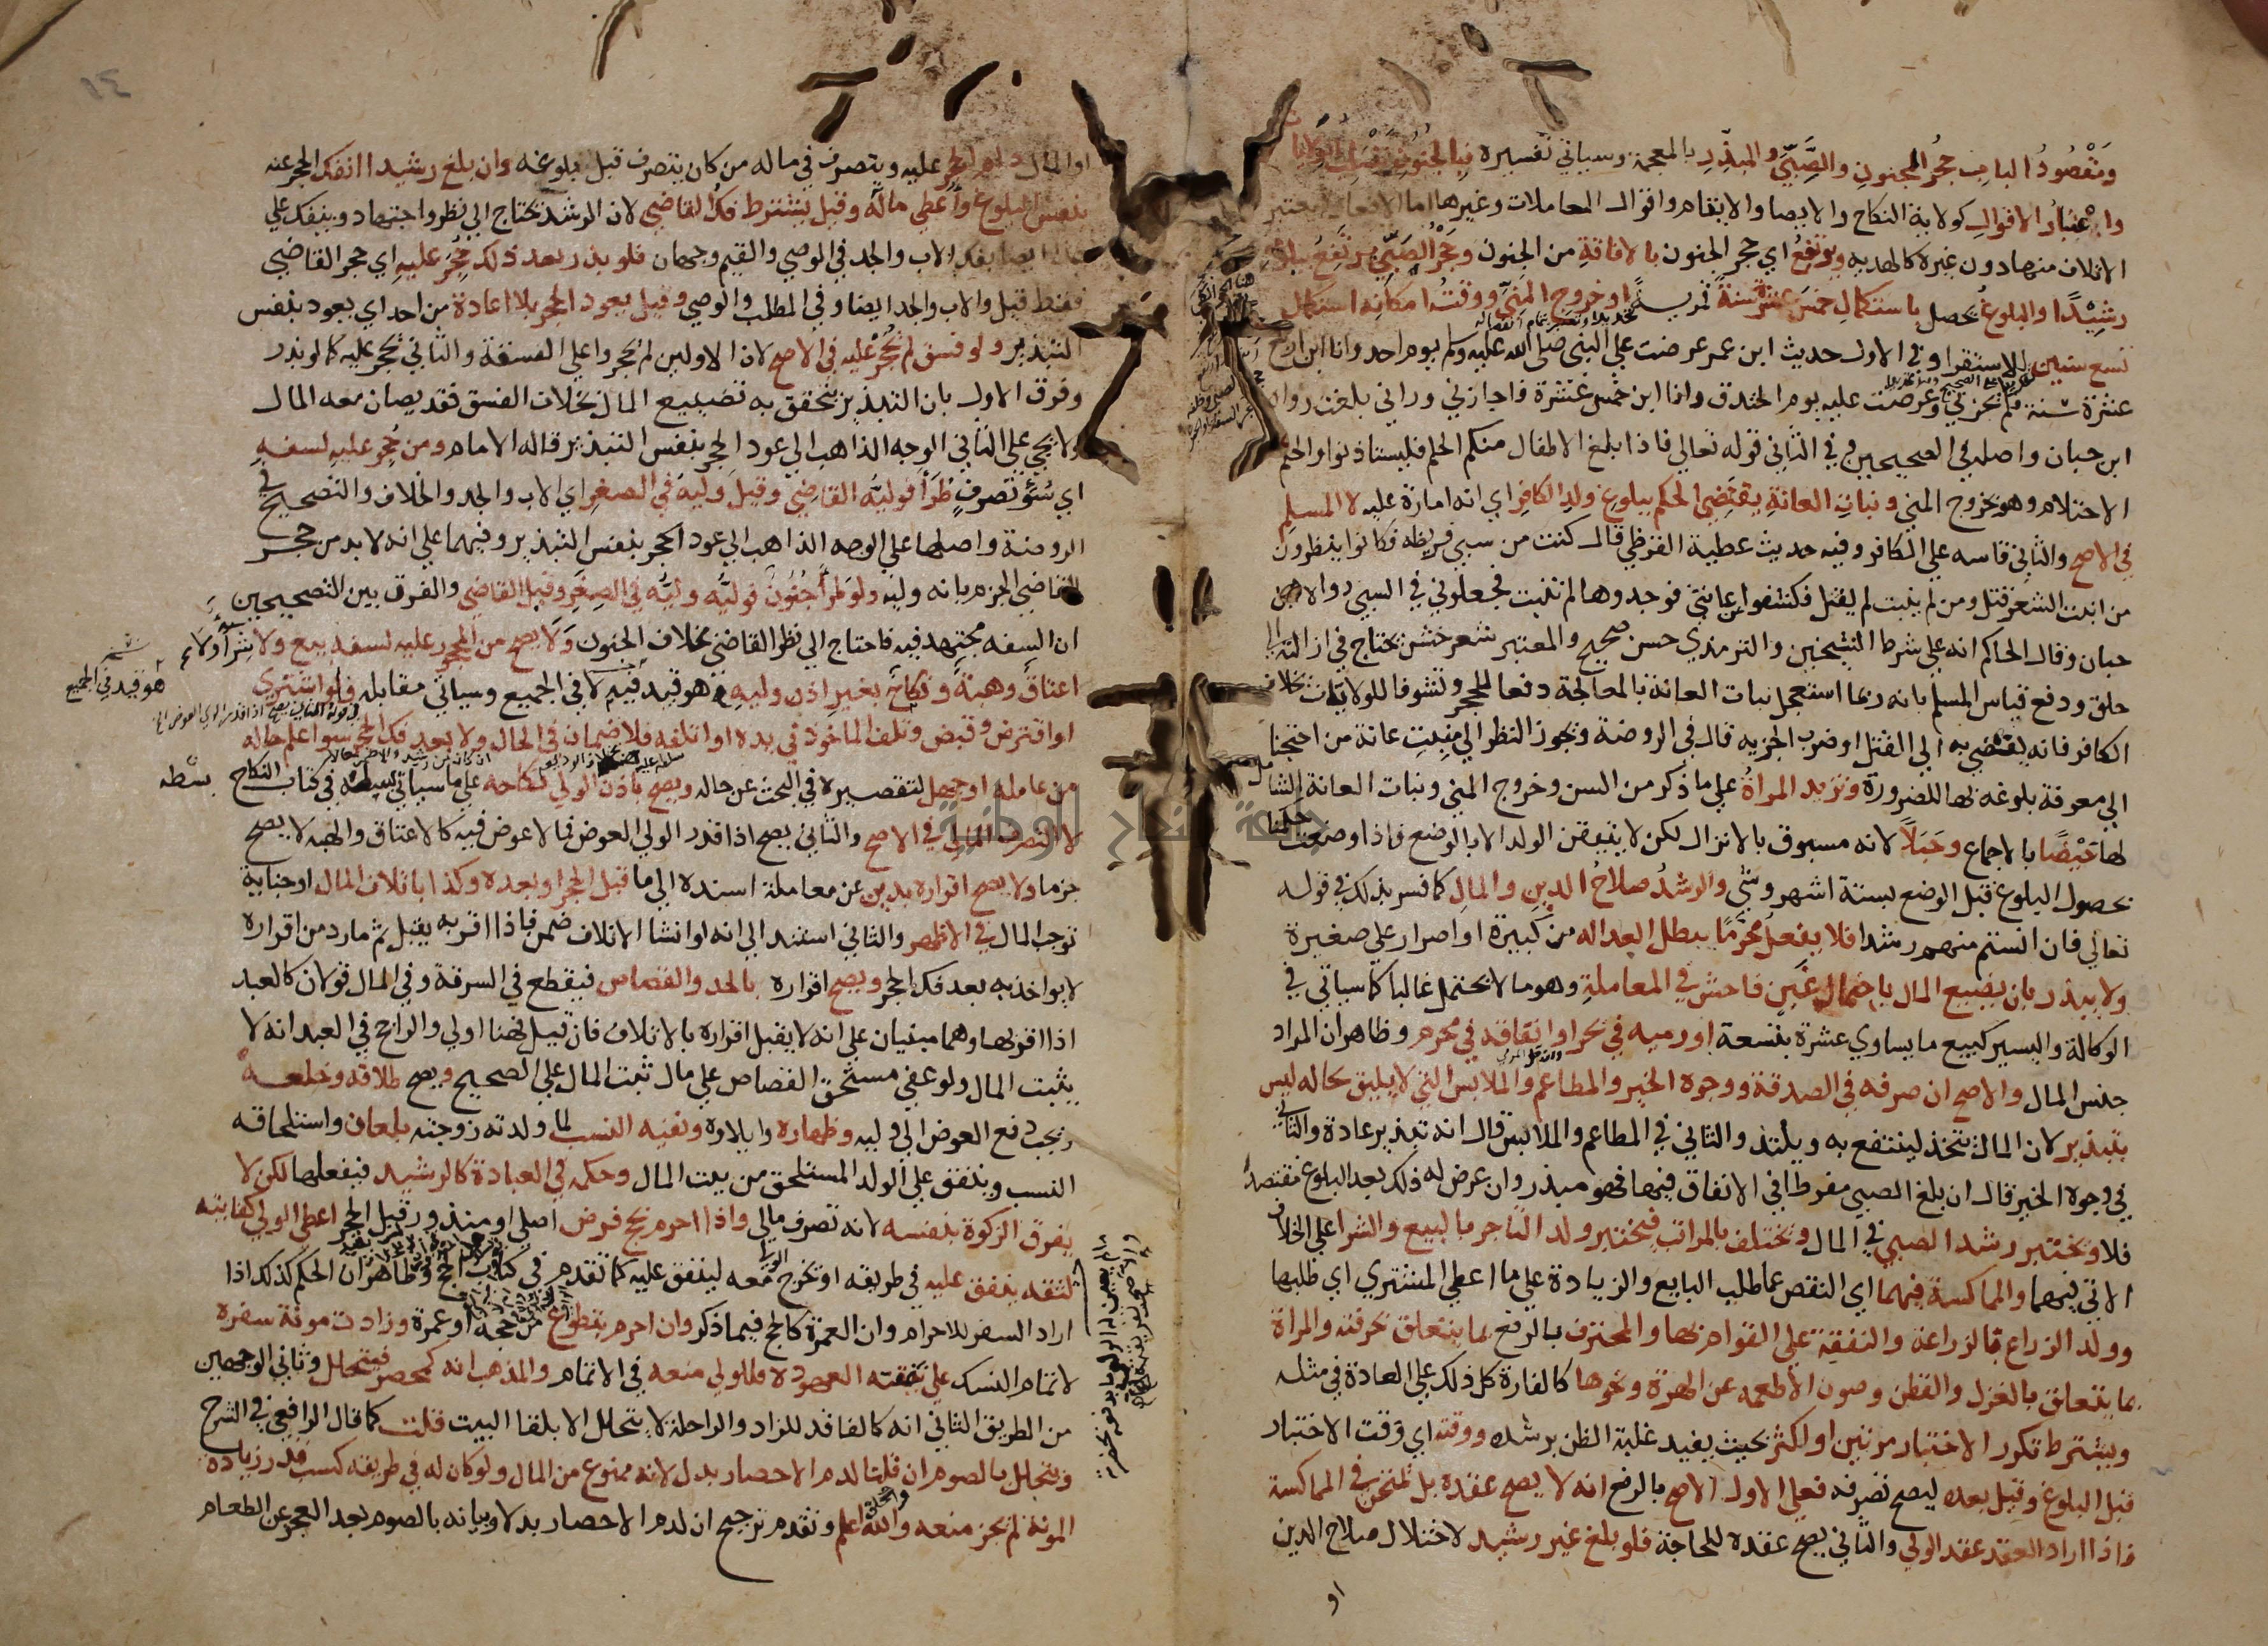 ومقصود الباب حجر المجنون والصبي والمبذر بالمعجمة وسياتي تفسيره فبالجنون تنسلب الولايات
واعتبار الاقوال كولاية النكاح والايصا والايتام واقوال المعاملات وغيرها اما الافعال فيعتبر
الاتلاف منها دون غيره كالهدية ويرتفع اي حجر المجنون بالافاقة من الجنون وحجر الصبي يرتفع ببلوغه
رشيدا والبلوغ يحصل باستكمال خمس عشرة سنة قمرية او خروج المني ووقت امكانه استكمال
تسع سنين للاستقرا وفي الاول حديث ابن عمر عرضت على النبي صلى الله عليه وسلم يوم احد وانا ابن اربع
عشرة سنة فلم يجزني وعرضت عليه يوم الخندق وانا ابن خمس عشرة فاجازني وراني بلغت رواه
ابن حبان واصله في الصحيحين وفي الثاني قوله تعالي فاذا بلغ الاطفال منكم الحلم فليستاذنوا والحلم
الاحتلام وهو خروج المني ونبات العانة يقتضي الحكم ببلوغ ولد الكافر اي انه امارة عليه لا المسلم
في الاصح والثاني قاسه علي الكافر وفيه حديث عطية القرظي قال كنت من سبي قريظه فكانوا ينظرون
من انبت الشعر قتل ومن لم ينبت لم يقتل فكشفوا عانتي فوجدوها لم تنبت فجعلوني في السبي رواه ابن
حبان وقال الحاكم انه علي شرط الشيخين والترمذي حسن صحيح والمعتبر شعر خشن يحتاج في ازالته الي
حلق ودفع قياس المسلم بانه ربما استعجل نبات العانة بالمعالجة دفعا للحجر وتشوفا للولايات بخلاف
الكافر فانه يقضي به الي القتل او ضرب الجزيه قال في الروضة ويجوز النظر الي منبت عانة من احتجنا
الي معرفة بلوغه بها للضرورة وتزيد المراة علي ما ذكر من السن وخروج المني ونبات العانة الشامل
لها حيضا بالاجماع وحبلا لانه مسبوق بالانزال لكن لا يتيقن الولد الا بالوضع فاذا وضعت حكمنا
بحصول البلوغ قبل الوضع بستة اشهر وشي والرشد صلاح الدين والمال كما فسر بذلك في قوله
تعالي فان انستم منهم رشدا فلا يفعل محرما يبطل العداله من كبيرة او اصرار علي صغيرة
ولا يبذر بان يضيع المال باحتمال غبن فاحش في المعاملة وهو ما لا يحتمل غالبا كما سياتي في
الوكالة واليسير كبيع ما يساوي عشرة بتسعة او رميه في بحر او انفاقه في محرم وظاهر ان المراد
جنس المال والاصح ان صرفه في الصدقة ووجوه الخير والمطاعم والملابس التي لا يليق بحاله ليس
بتبذير لان المال يتخذ لينتفع به ويلتذ والثاني في المطاعم والملابس قال انه تبذير عادة والثاني
في وجوه الخير قال ان بلغ الصبي مفرطا في الانفاق فيها فهو مبذر وان عرض له ذلك بعد البلوغ مقتصدا
فلا ويختبر رشد الصبي في المال ويختلف بالمراتب فيختبر ولد التاجر بالبيع والشرا علي الخلاف
الاتي فيهما والمماكسة فيهما اي النقص عما طلب البايع والزيادة علي ما اعطي المشتري اي طلبها
وولد الزراع بالزراعة والنفقة علي القوام بها والمحترف بالرفع بما يتعلق بحرفته والمراة
بما يتعلق بالغزل والقطن وصون الاطعمه عن الهرة ونحوها كالفارة كل ذلك علي العادة في مثله
ويشترط تكرر الاختبار مرتين او اكثر بحيث يفيد غلبة الظن برشده ووقته اي وقت الاختبار
قبل البلوغ وقيل بعده ليصح تصرفه فعلي الاول الاصح بالرفع انه لا يصح عقده بل يمتحن في المماكسة
فاذا اراد العقد عقد الولي والثاني يصح عقده للحاجة فلو بلغ غير رشيد لاختلال صلاح الدين
او
١٤
او المال دام الحجر عليه ويتصرف في ماله من كان يتصرف قبل بلوغه وان بلغ رشيدا انفك الحجر عنه
بنفس البلوغ واعطي ماله وقيل يشترط فك القاضي لان الرشد يحتاج الي نظر واجتهاد وينفك علي
هذا ايضا بفك الاب والجد في الوصي والقيم وجهان فلو بذر بعد ذلك حجر عليه اي حجر القاضي
فقط قيل والاب والجد ايضا وفي المطلب والوصي وقيل يعود الحجر بلا اعادة من احد اي يعود بنفس
التبذير ولو فسق لم يحجر عليه في الاصح لان الاولين لم يحجروا علي الفسقة والثاني يحجر عليه كما لو بذر
وفرق الاول بان التبذير يتحقق به تضييع المال بخلاف الفسق فقد يصان معه المال
ولا يجي علي الثاني الوجه الذاهب الي عود الحجر بنفس التبذير قاله الامام ومن حجر عليه لسفه
اي سؤ تصرف طرا فوليه القاضي وقيل وليه في الصغر اي الاب والجد والخلاف والتصحيح في
الروضة واصلها علي الوجه الذاهب الي عود الحجر بنفس التبذير وفيهما علي انه لا بد من حجر
القاضي الجزم بانه وليه ولو طرا جنون فوليه وليه في الصغر وقيل القاضي والفرق بين التصحيحين
ان السفه مجتهد فيه فاحتاج الي نظر القاضي بخلاف الجنون ولا يصح من المحجور عليه لسفه بيع ولا شراء ولا
اعتاق وهبة ونكاح بغير اذن وليه هو قيد فيه لا في الجميع وسياتي مقابله فلو اشتري
هو قيد في الجميع
او اقترض وقبض وتلف الماخوذ في يده او اتلفه فلا ضمان في الحال ولا بعد فك الحجر سوا علم حاله
من عامله او جهل لتقصيره في البحث عن حاله ويصح باذن الولي نكاحه علي ما سياتي بسطه في كتاب النكاح
بسطه
لا التصرف المالي في الاصح والثاني يصح اذا قدر الولي العوض فما لا عوض فيه كالاعتاق والهبه لا يصح
جزما ولا يصح اقراره بدين عن معاملة اسنده الي ما قبل الحجر او بعده وكذا باتلاف المال او جناية
توجب المال في الاظهر والثاني استند الي انه لو انشا الاتلاف ضمن فاذا اقر به يقبل ثم ما رد من اقراره
لا يواخذ به بعد فك الحجر ويصح اقراره بالحد والقصاص فيقطع في السرقة وفي المال قولان كالعبد
اذا اقر بها وهما مبنيان علي انه لا يقبل اقراره بالاتلاف فان قبل فهنا اولي والراجح في العبد انه لا
يثبت المال ولو عفي مستحق القصاص علي مال ثبت المال علي الصحيح ويصح طلاقه وخلعه
ويجب دفع العوض الي وليه وظهاره وايلاوه ونفيه النسب لما ولدته زوجته بلعان واستلحاقه
النسب وينفق علي الولد المستلحق من بيت المال وحكمه في العبادة كالرشيد فيفعلها لكن لا
يفرق الزكوة بنفسه لانه تصرف مالي واذا احرم بحج فرض اصلي او منذور قبل الحجر اعطي الولي كفايته
لثقة ينفق عليه في طريقه او يخرج الولي معه لينفق عليه كما تقدم في كتاب الحج وظاهر ان الحكم كذلك اذا
اراد السفر للاحرام وان العمرة كالحج فيما ذكر وان احرم بتطوع من حجه او عمرة وزادت مونة سفره
لاتمام النسك علي نفقته المعهودة فللولي منعه في الاتمام والمذهب انه كمحصر فيتحلل وثاني الوجهين
من الطريق الثاني انه كالفاقد للزاد والراحلة لا يتحلل الا بلقا البيت قلت كما قال الرافعي في الشرح
ويتحلل بالصوم ان قلنا لدم الاحصار بدل لانه ممنوع من المال ولو كان له في طريقه كسب قدر زيادة
المونة لم يجز منعه والله اعلم وتقدم ترجيح ان لدم الاحصار بدلا وبيانه بالصوم بعد العجز عن الطعام